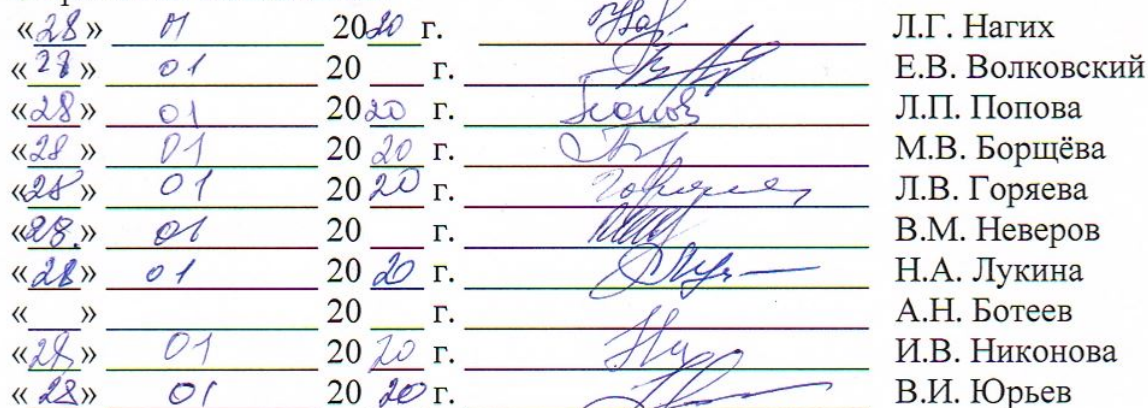 «28» 01 2020 г. Л.Г. Нагих
«28» 01 20 г. Е.В. Волковский
«28» 01 2020 г. Попов Л.П. Попова
«28» 01 2020 г. М.В. Борщёва
«28» 01 2020 г. Горяева Л.В. Горяева
«28» 01 20 г. В.М. Неверов
«28» 01 2020 г. Н.А. Лукина
« » 20 г. А.Н. Ботеев
«28» 01 2020 г. И.В. Никонова
«28» 01 2020 г. В.И. Юрьев